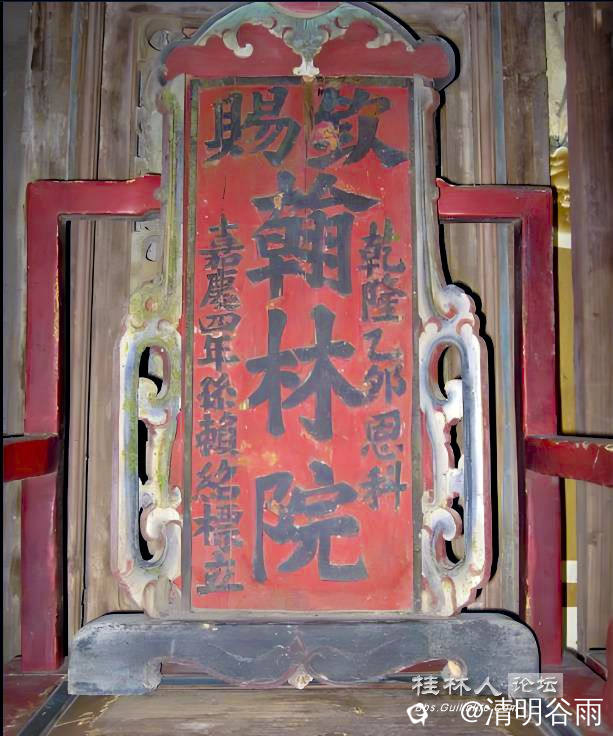 欽賜
翰林院
乾隆乙卯恩科
嘉慶四年孫賴紹標立
桂林人论坛
bbs.Guilinlife.com
@清明谷雨